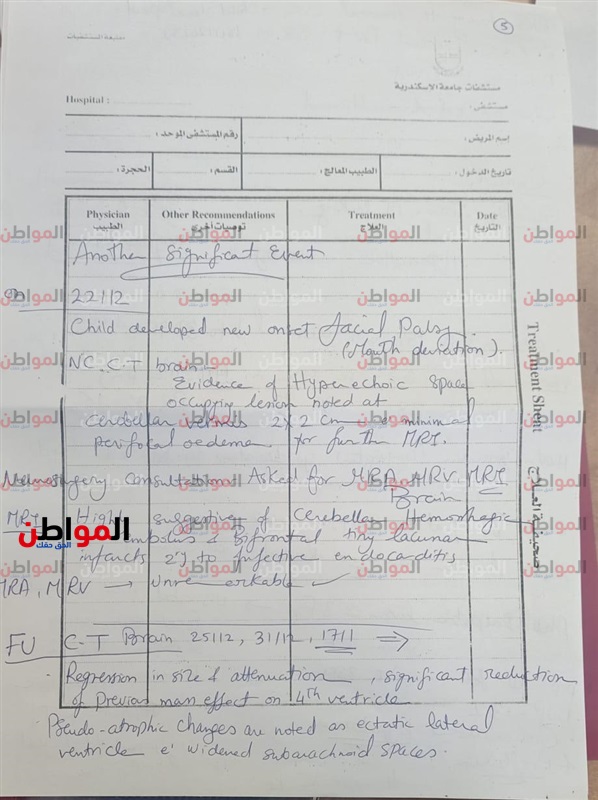 5
جامعة المستشفيات
مستشفات جامعة الاسكندرية
Hospital :
مستشفى :
إسم المريض :
رقم المستشفى الموحد :
تاريخ الدخول :
الطبيب المعالج :
القسم :
الحجرة :
Physician
الطبيب
Other Recommendations
توصيات أخرى
Treatment
العلاج
Date
التاريخ
Another Significant Event
22/12
Child developed new onset Facial Palsy.
(Mouth deviation).
NC.C.T brain
Evidence of Hyperechoic Space
occupying lesion noted at
Cerebellar vermis 2x2 cm minimal
perifocal oedema for further MRI.
Neurosurgery consultation Asked for MRA, MRV MRI
Brain
MRI Highly suggestive of Cerebellar Hemorrhagic
embolus & bifrontal tiny lacunar
infarcts 2'y to infective endocarditis
MRA, MRV → Unremarkable
FU C-T Brain 25/12, 31/12, 17/1 ⇒
Regression in size & attenuation, significant reduction
of Previous mass effect on 4th ventricle
Pseudo-atrophic changes are noted as ectatic lateral
ventricle e' widened subarachnoid spaces.
Treatment Sheet
صحيفة العلاج
المواطن
الحق حقك